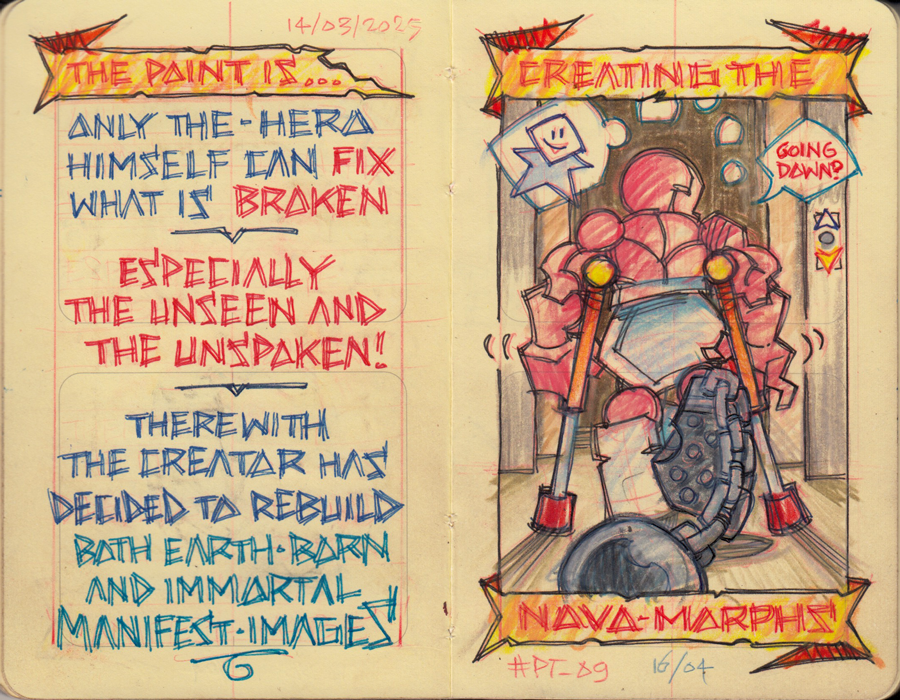 14/03/2025
THE POINT IS...
ONLY THE-HERO
HIMSELF CAN FIX
WHAT IS BROKEN
ESPECIALLY
THE UNSEEN AND
THE UNSPOKEN!
THEREWITH
THE CREATOR HAS
DECIDED TO REBUILD
BOTH EARTH-BORN
AND IMMORTAL
MANIFEST-IMAGES
CREATING THE
GOING
DOWN?
NOVA-MORPHS'
#PT_09
16/04